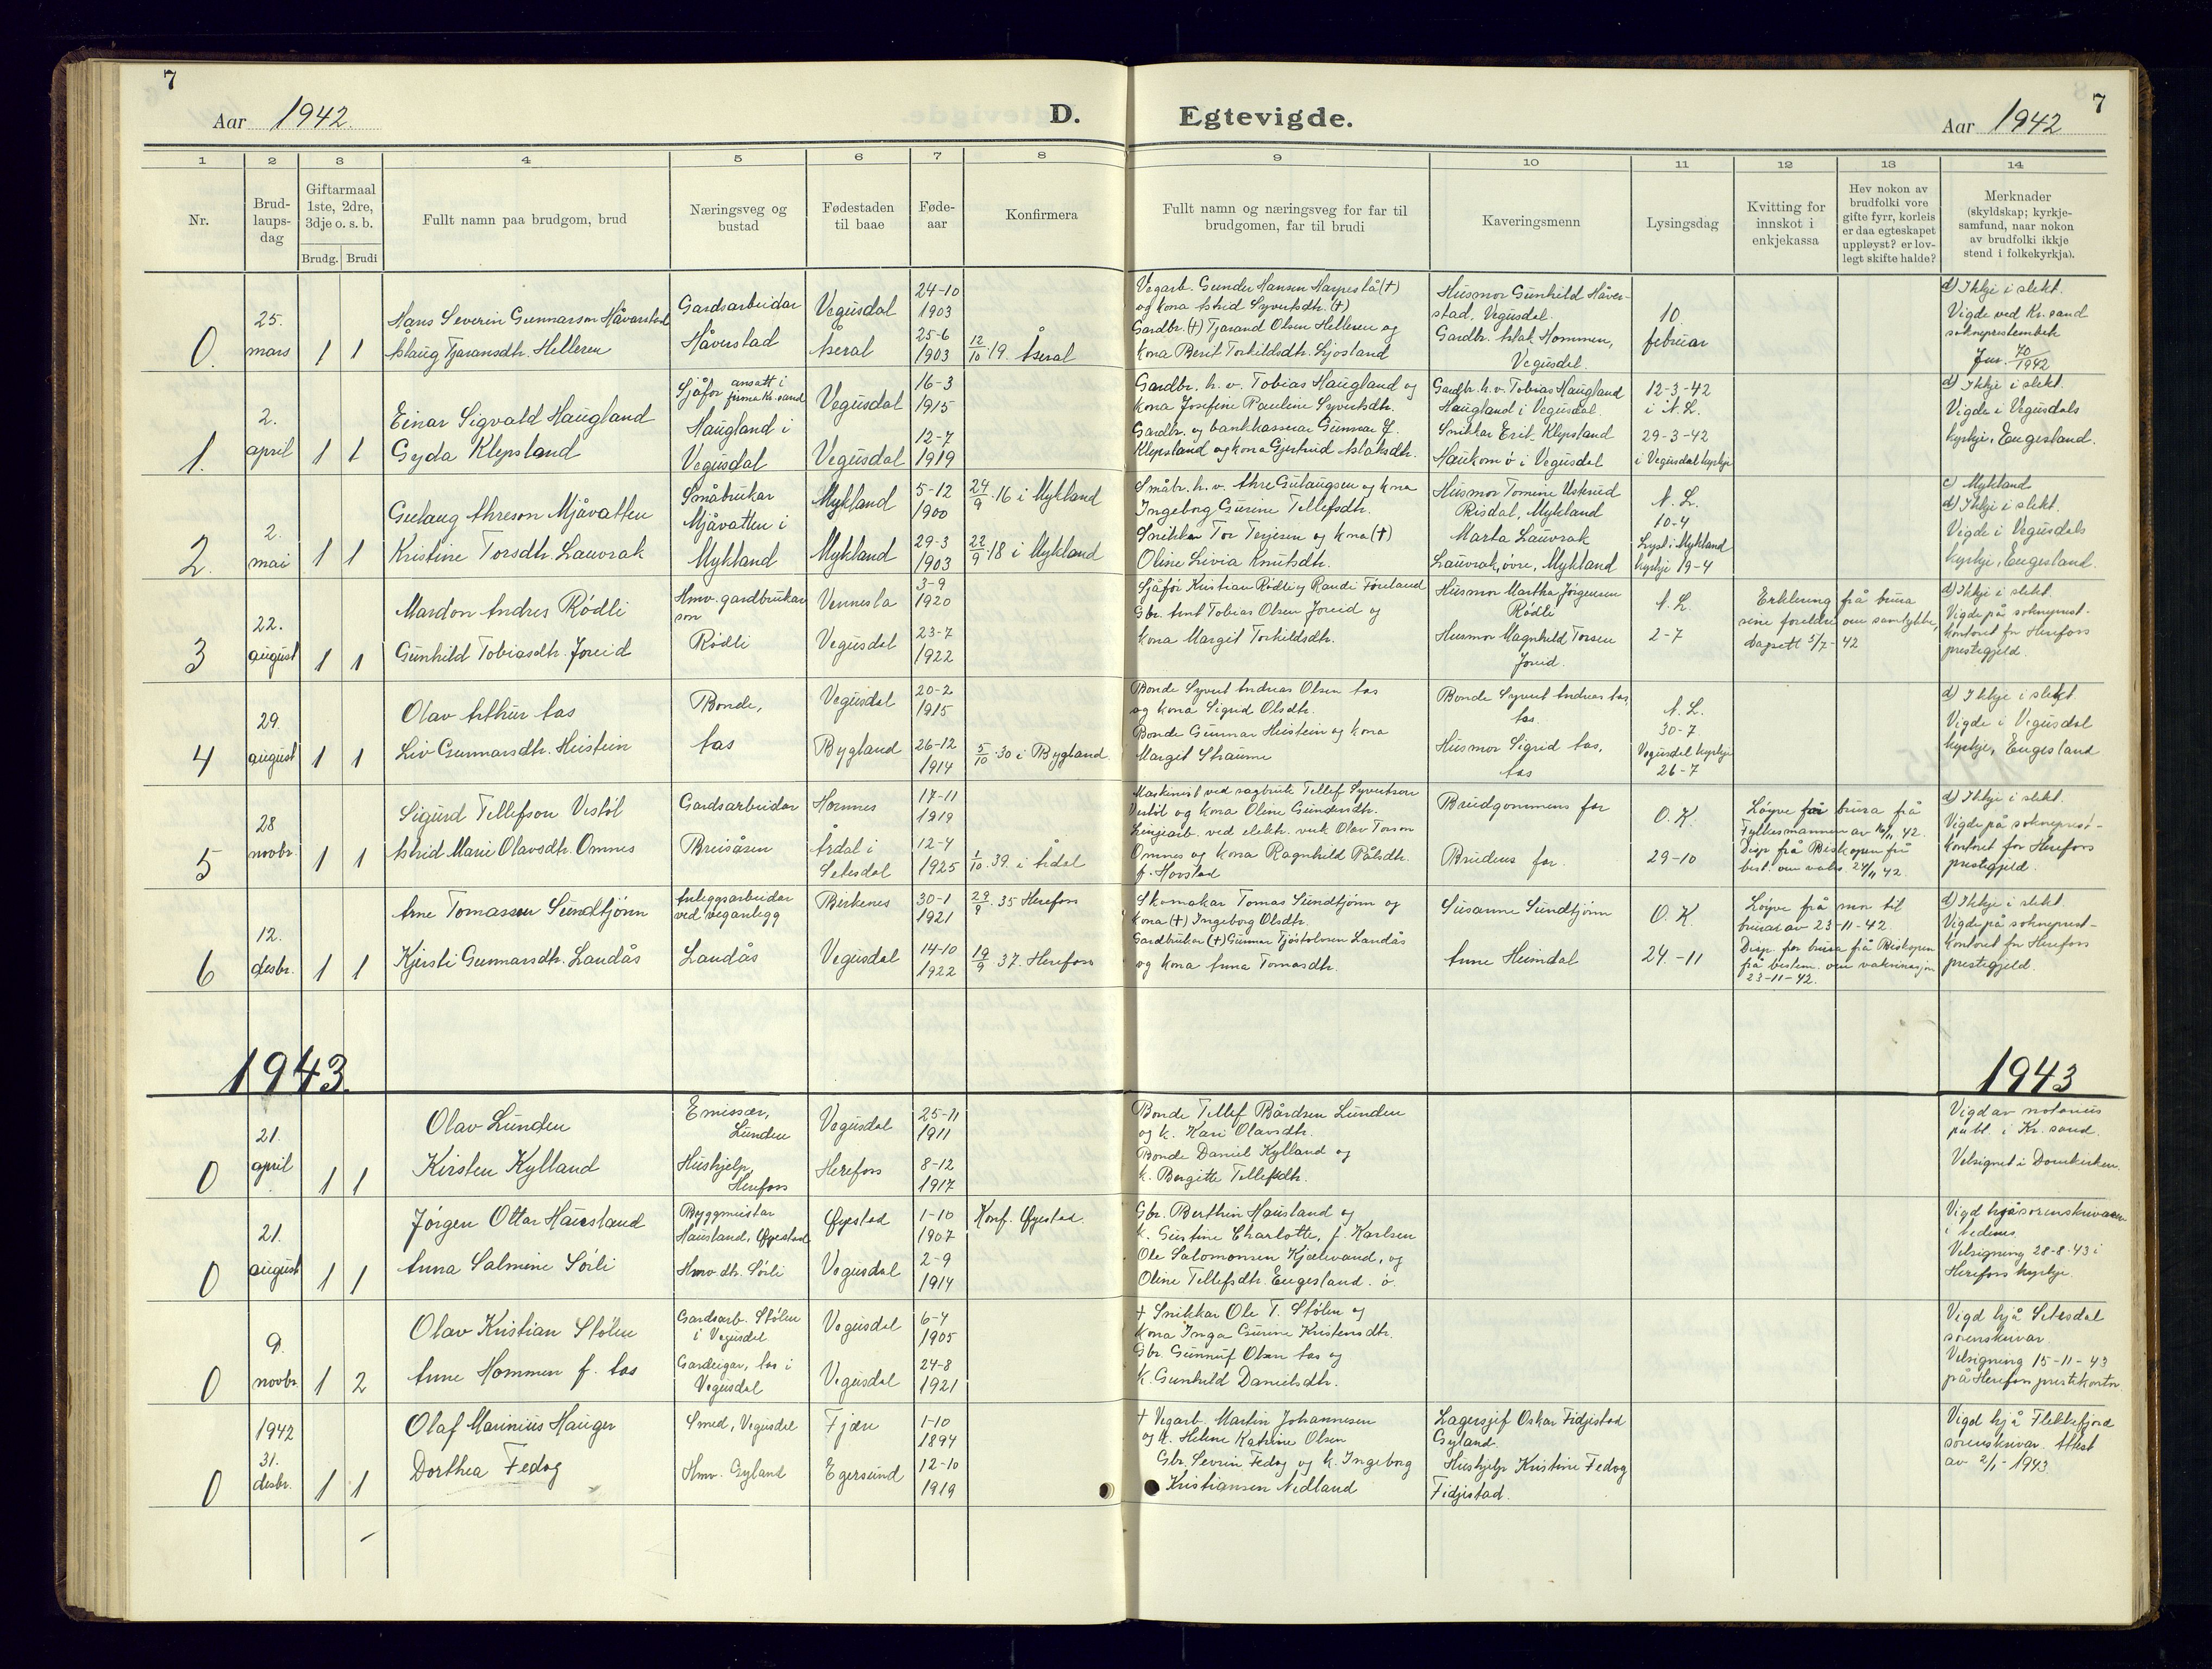 7
Aar 1942.
D.
Egtevigde.
Aar 1942
7
1 2 3 4 5 6 7 8 9 10 11 12 13 14
Nr.
Brud-
laups-
dag
Giftarmaal
1ste, 2dre,
3dje o. s. b.
Brudg. Brudi
Fullt namn paa brudgom, brud
Næringsveg og
bustad
Fødestaden
til baae
Føde-
aar
Konfirmera
Fullt namn og næringsveg for far til
brudgomen, far til brudi
Kaveringsmenn
Lysingsdag
Kvitting for
innskot i
enkjekassa
Hev nokon av
brudfolki vore
gifte fyrr, korleis
er daa egteskapet
uppløyst? er lov-
legt skifte halde?
Merknader
(skyldskap; kyrkje-
samfund, naar nokon
av brudfolki ikkje
stend i folkekyrkja).
0.
25.
mars
1 1
Hans Severin Gunnarson Håverstad
Aslaug Tjaransdtr. Helleren
Gardsarbeidar
Håverstad
Vegusdal
Åseral
24-10
1903
25-6
1903
12/10 19. Åseral
Vegarb. Gunder Hansen (+)
og kona Astrid Syvertsdtr. (+)
Gardbr. (+) Tjarand Olsen Helleren og
kona Berit Torkildsdtr. Ljosland
Husmor Gunhild Håver-
stad, Vegusdal.
Gardbr. Aslak Hommen,
Vegusdal.
10
februar
d) Ikkje i slekt.
Vigde ved Kr.sand
sokneprestembete
Jnr. 70/1942
1.
2.
april
1 1
Einar Sigvald Haugland
Gyda Klepsland
Sjåfør ansatt i
firma Kr.sand
Haugland i
Vegusdal
Vegusdal
Vegusdal
16-3
1915
12-7
1919
Gardbr. h. v. Tobias Haugland og
kona Josefine Pauline Syvertsdtr.
Gardbr. og bankkasserar Gunnar
Klepsland og kona Gjertrud Aslaksdtr.
Gardbr. h. v. Tobias Haugland
Haugland i Vegusdal.
Snikkar Erik Klepsland
Haukom ö i Vegusdal
12-3-42
i N. L.
29-3-42
i Vegusdal kyrkje
d) Ikkje i slekt.
Vigde i Vegusdals
kyrkje, Engesland.
2.
2.
mai
1 1
Gulaug Athreson Mjåvatten
Kristine Torsdtr. Lauvrak
Småbrukar
Mjåvatten i
Mykland
Mykland
Mykland
5-12
1900
29-3
1903
24/9 16 i Mykland
22/9 18 i Mykland
Småbr. h. v. Athre Gulaugsen og kona
Ingeborg Gurine Tellefsdtr.
Snikkar Tor Terjesen og kona (+)
Oline Livia Knutsdtr.
Husmor Tomine Uskrud
Risdal, Mykland
Marta Lauvrak
Lauvrak, övre, Mykland
N. L.
10-4
Lyst i Mykland
kyrkje 19-4
c) Mykland
d) Ikkje i slekt.
Vigde i Vegusdals
kyrkje, Engesland.
3
22.
august
1 1
Mardon Andres Rödli
Gunhild Tobiasdtr. Joreid
Hmv. gardbrukar
son
Rödli
Vennesla
Vegusdal
3-9
1920
23-7
1922
Sjåför Kristian Rödli og Randi Föreland
Gbr. Arnt Tobias Olsen Joreid og
kona Margit Torkildsdtr.
Husmor Martha Jörgensen
Rödli
Husmor Magnhild Torsen
Joreid.
N. L.
2-7
Erklering frå brura
sine foreldre om samtykke,
dagsett 5/7-42
d) Ikkje i slekt.
Vigde på sokneprest-
kontoret for Herefoss
prestegjeld.
4
29.
august
1 1
Olav Arthur Aas
Liv Gunnarsdtr. Heistein
Bonde,
Aas
Vegusdal
Bygland
20-2
1915
26-12
1914
5/10 30 i Bygland
Bonde Syvert Andreas Olsen Aas
og kona Sigrid Olsdtr.
Bonde Gunnar Heistein og kona
Margit Straume
Bonde Syvert Andreas Aas,
Aas.
Husmor Sigrid Aas,
Aas
N. L.
30-7
Vegusdal kyrkje
26-7
d) Ikkje i slekt
Vigde i Vegusdal
kyrkje, Engesland
5
28
novbr.
1 1
Sigurd Tellefson Vestöl
Astrid Marie Olavsdtr. Omnes
Gardsarbeidar
Breisåsen
Hornnes
Årdal i
Setesdal
17-11
1919
12-4
1925
1/10 39. i Årdal
Maskinist ved sagbruk Tellef Syvertson
Vestöl og kona Oline Gundersdtr.
Linjearb. ved elektr. verk Olav Torson
Omnes og kona Ragnhild Pålsdtr.
f. Hovstad
Brudgommens far
Brudens far.
O. K.
29-10
Löyve for brura frå
Fylkesmannen av 16/11 42.
Disp. frå Biskopen frå
best. om vaks. 24/11 42.
d) Ikkje i slekt.
Vigde på sokneprest-
kontoret for Herefoss
prestegjeld.
6
12.
desbr.
1 1
Arne Tomassen Sundtjönn
Kjersti Gunnarsdtr. Landås
Anleggsarbeidar
ved veganlegg
Landås
Birkenes
Vegusdal
30-1
1921
14-10
1922
29/9 35 Herefoss
19/9 37. Herefoss
Skomakar Tomas Sundtjönn og
kona (+) Ingeborg Olsdtr.
Gardbrukar (+) Gunnar Tjöstolvsen Landås
og kona Anna Tomasdtr.
Susanne Sundtjönn
Anne Heimdal
O. K.
24.-11
Löyve frå mor til
brura av 23-11-42.
Disp. for brura frå Biskopen
frå bestem. om vaksinasjon
23-11-42.
d) Ikkje i slekt.
Vigde på sokneprest-
kontoret for Herefoss
prestegjeld.
1943.
1943
0
21.
april
1 1
Olav Lunden
Kirsten Kylland
Emissær,
Lunden
Hushjelp,
Herefoss
Vegusdal
Herefoss
25-11
1911
8-12
1917
Bonde Tellef Bårdsen Lunden
og k. Kari Olavsdtr.
Bonde Daniel Kylland og
k. Bergitte Tellefsdtr.
Vigd av notarius
publ. i Kr. sand.
Velsignet i Domkirken.
0
21.
august
1 1
Jörgen Ottar Hausland
Anna Salmine Sörli
Byggmeistar
Hausland, Øyestad
Hmv. dtr. Sörli
Øyestad
Vegusdal
1-10
1907
2-9
1914
Konf. Øyestad.
Gbr. Berthin Hausland og
k. Gustine Charlotte, f. Karlsen
Ole Salomonsen Kjælevand, og
Oline Tellefsdtr. Engesland. ö.
Vigd hjå sorenskrivaren
i Nedenes
Velsigning 28-8-43 i
Herefoss kyrkje.
0
9.
novbr.
1 2
Olav Kristian Stölen
Anne Hommen f. Aas
Gardsarb. Stölen
i Vegusdal
Gardeigar, Aas i
Vegusdal
Vegusdal
Vegusdal
6-4
1905
24-8
1921
+ Snikkar Ole T. Stölen og
kona Inga Gurine Kristensdtr.
Gbr. Gunnuf Olsen Aas og
k. Gunhild Danielsdtr.
Vigd hjå Setesdal
sorenskrivar.
Velsigning 15-11-43
på Herefoss prestekontor
0
1942
31.
desbr.
1 1
Olaf Marinius Hauger
Dorthea Fedog
Smed, Vegusdal
Hmv. Gyland
Fjære
Egersund
1-10
1894
12-10
1919
+ Vegarb. Martin Johannesen
og k. Helene Katrine Olsen
Gbr. Sevrin Fedog og k. Ingeborg
Kristiansen Nedland
Lagersjef Oskar Fidjestad
Gyland.
Hushjelp Kristine Fedog
Fidjestad.
Vigd hjå Flekkefjord
sorenskrivar. Attest
av 2/1-1943